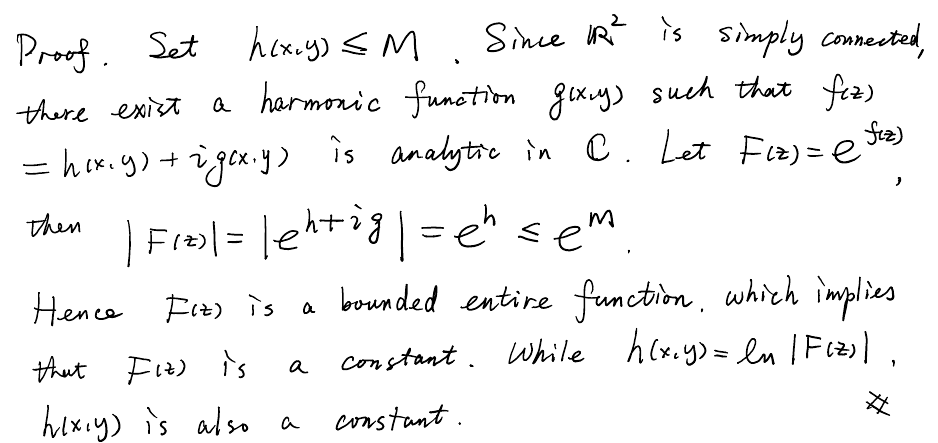 Proof. Set h(x,y) ≤ M. Since ℝ² is simply connected,
there exist a harmonic function g(x,y) such that f(z)
= h(x,y) + i g(x,y) is analytic in ℂ. Let F(z) = e^{f(z)},
then |F(z)| = |e^{h+ig}| = e^h ≤ e^M.
Hence F(z) is a bounded entire function, which implies
that F(z) is a constant. While h(x,y) = ln |F(z)|,
h(x,y) is also a constant. #